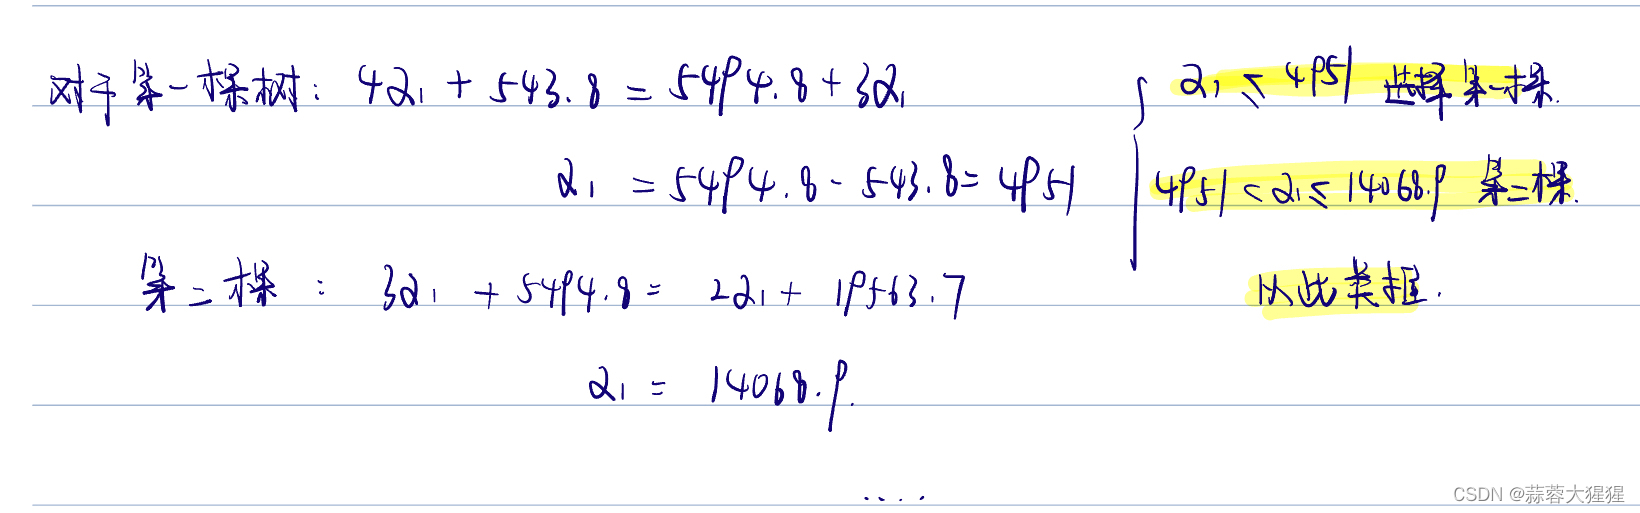 对于第一棵树: 4α₁ + 543.8 = 5494.8 + 3α₁
α₁ = 5494.8 - 543.8 = 4951
第二棵 : 3α₁ + 5494.8 = 2α₁ + 19563.7
α₁ = 14068.9.
.....
α₁ ≤ 4951 选择第一棵.
4951 < α₁ ≤ 14068.9 第二棵.
以此类推.
CSDN @蒜蓉大猩猩